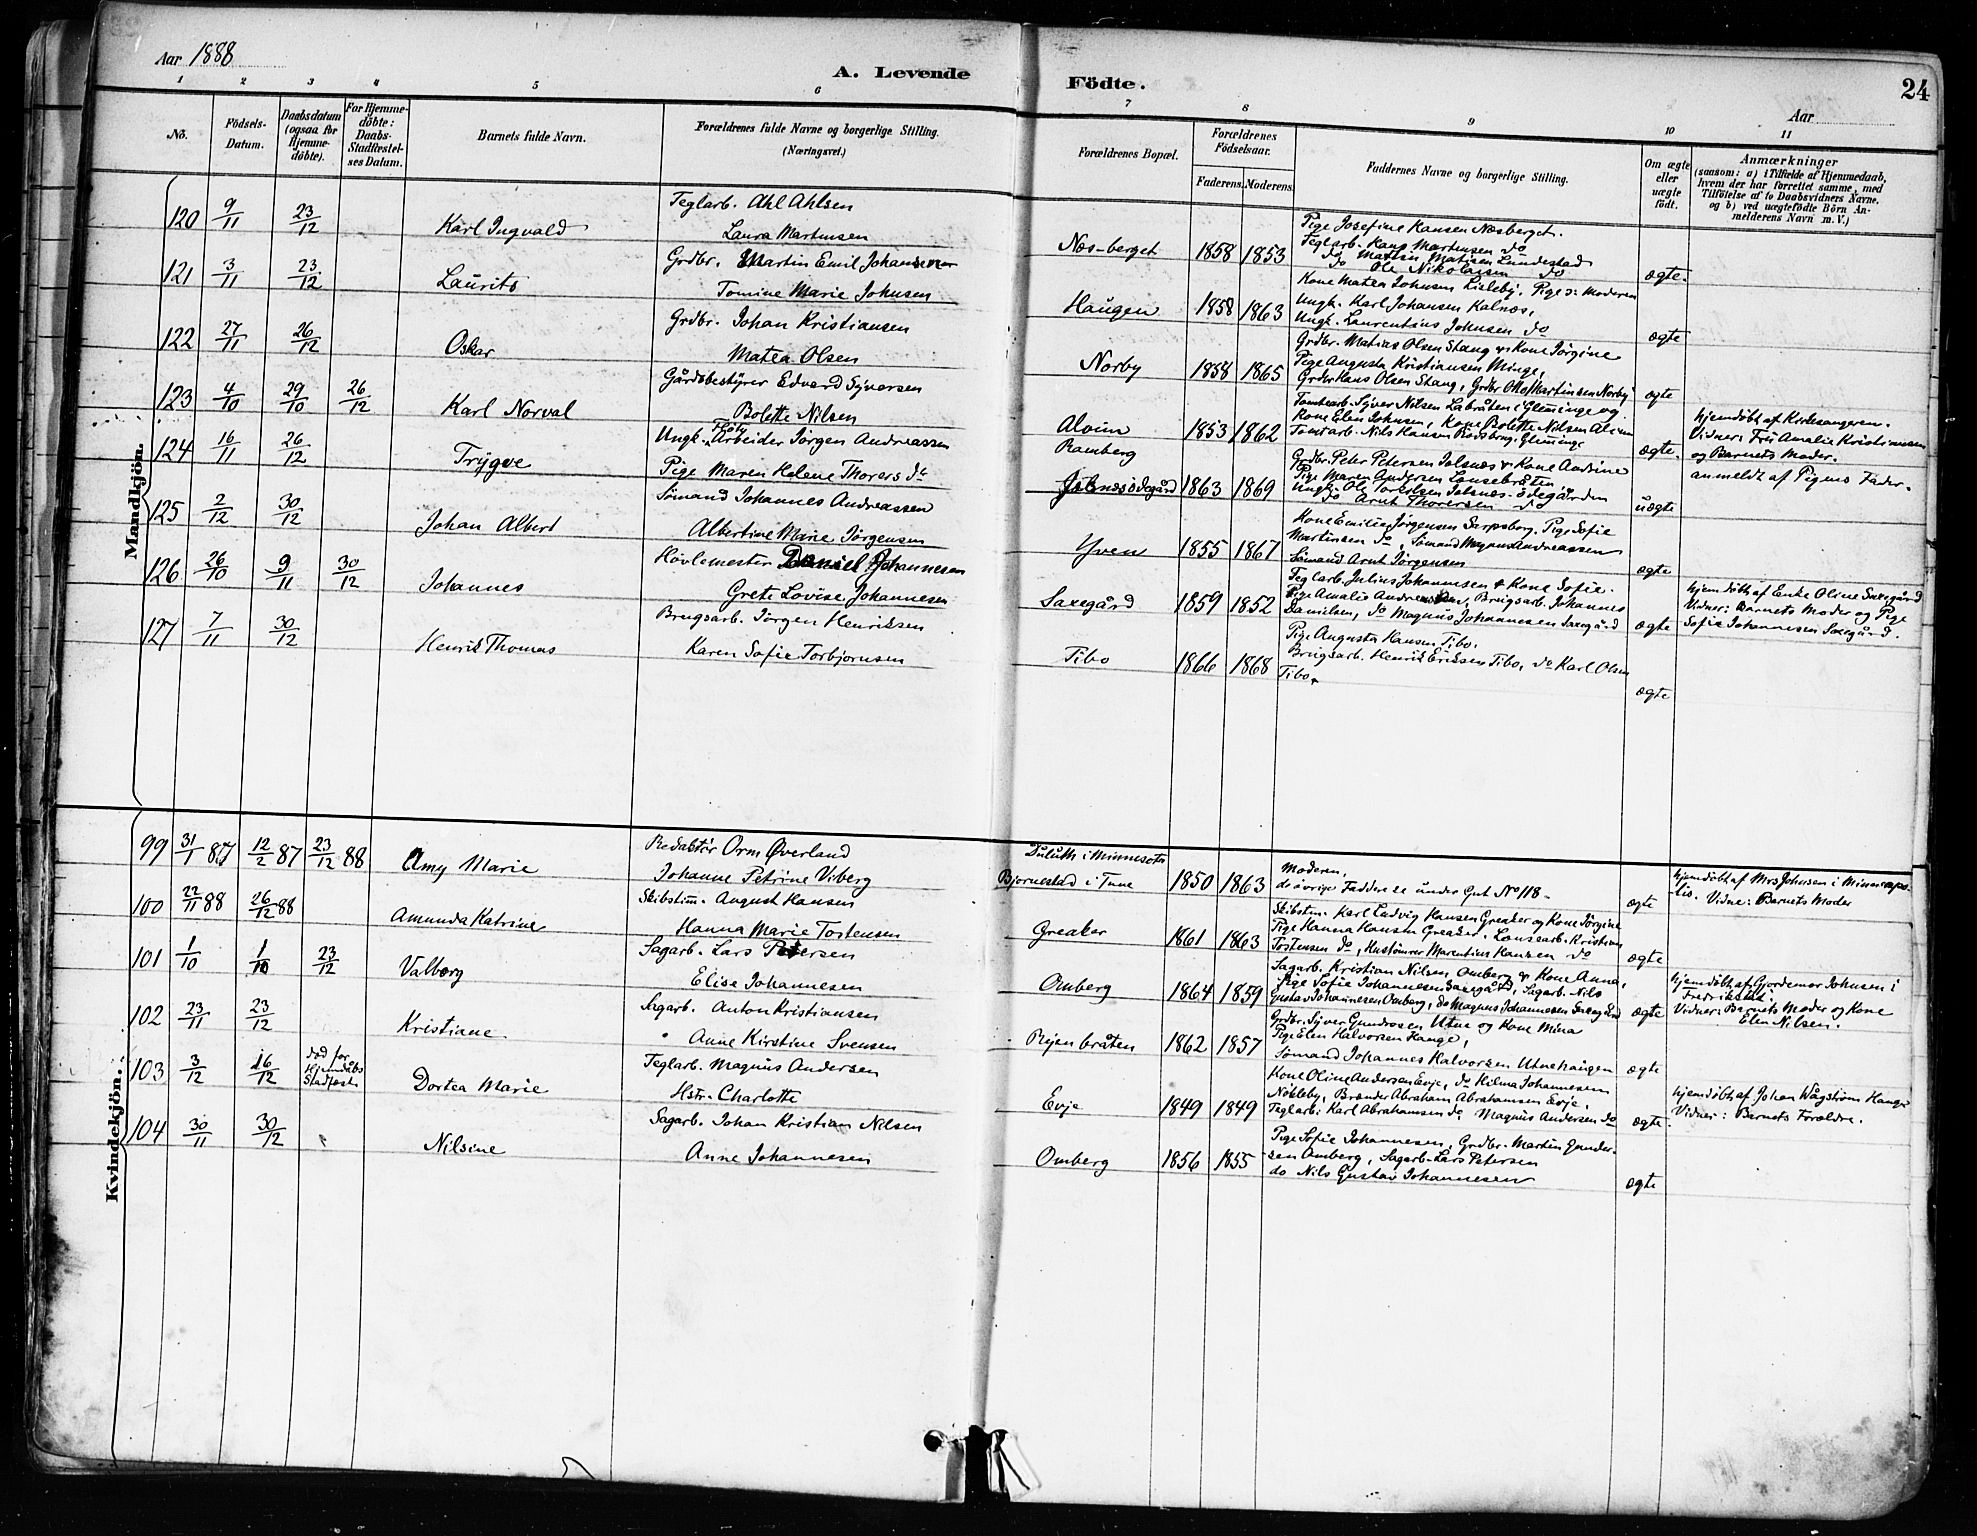 Aar 1888
A. Levende
Födte.
24
Aar
1 2 3 4 5 6 7 8 9 10 11
No.
Födsels-Datum.
Daabsdatum (ogsaa for Hjemme-døbte).
For Hjemme-døbte: Daabs-Stadfæstelses Datum.
Barnets fulde Navn.
Forældrenes fulde Navne og borgerlige Stilling.
(Næringsvei.)
Forældrenes Bopæl.
Forældrenes Födselsaar.
Faderens. Moderens.
Faddernes Navne og borgerlige Stilling.
Om ægte eller uægte født.
Anmærkninger
(saasom: a) i Tilfælde af Hjemmedaab, hvem der har forrettet samme, med Tilføielse af to Daabsvidners Navne, og b) ved uægtefødte Börn Anmelderens Navn m. V.)
Mandkjön.
120 9/11 23/12 Karl Ingvald
Teglarb. Ahl Ahlsen
Laura Martinsen
Næs-berget 1858 1853
Pige Josefine Hansen Næsberget.
Teglarb. Hans Martinsen do
do Mathis Matisen Lundestad
Ole Nikolaisen do
ægte.
121 3/11 23/12 Laurits
Grdbr. Martin Emil Johansen
Tomine Marie Johnsen
Haugen 1858 1863
Kone Matea Johnsen Lisleby, Pige o: Moderen
Ungk. Karl Johansen Kalnæs,
Ungk. Laurentius Johnsen do
ægte
122 27/11 26/12 Oskar
Grdbr. Johan Kristiansen
Matea Olsen
Norby 1858 1865
Grdbr. Matias Olsen Stang & Kone Jörgine
Pige Augusta Kristiansen Minge,
Grdbr Hans Olsen Stang, Grdbr Ole Martinsen Norby
ægte
123 4/10 29/10 26/12 Karl Norval
Gårdsbestyrer Edvard Syversen
Bolette Nilsen
Alvim 1853 1862
Tomtearb. Syver Nilsen Labråten i Glemminge og
Kone Elen Johnsen, Kone Bolette Nilsen Alvim
Tomtarb. Nils Hansen Rødsbrug, Glemminge
ægte.
hjemdöbt af Kirkesangeren.
Vidner: Fru Amalie Kristiansen
og Barnets Moder.
124 16/11 26/12 Trygve
Ungk. Fløtn. Arbeider Jörgen Andreassen
Pige Maren Helene Thorers dr
Ramberg
Jelsnæsödegård 1863 1869
Grdbr. Peter Petersen Jelsnæs & Kone Andrine
Pige Maren Andersen Lensebråten
Ungk. Ole Torersen Jelsnæs-ödegården
do Arnt Thorersen do
uægte
anmeldt af Pigens Fader.
125 2/12 30/12 Johan Albert
Sömand Johannes Andreassen
Albertine Marie Jörgensen
Yven 1855 1867
Kone Emilie Jörgensen Sarpsborg. Pige Sofie
Martinsen do, Sömand Magnus Andreassen
Sömand Arnt Jörgensen
ægte
126 26/10 9/11 30/12 Johannes
Hövlemester Daniel Johannesen
Grete Lovise Johannesen
Saxegård 1859 1852
Teglarb. Julius Johannesen & Kone Sofie.
Pige Amalie Andreassen, Brugsarb. Johannes
Danielsen, do Magnus Johannesen Saxegård
ægte
hjemdöbt af Enke Oline Saxegård
Vidner: Barnets Moder og Pige
Sofie Johannesen Saxegård.
127 7/11 30/12 Henrik Thomas
Brugsarb. Jörgen Henriksen
Karen Sofie Torbjornsen
Tibo 1866 1868
Pige Augusta Hansen Tibo.
Brugsarb. Henrik Eriksen Tibo, do Karl Olsen
Tibo.
ægte
Kvindekjön.
99 31/1 87 12/2 87 23/12 88 Amy Marie
Redaktör Orm Øverland
Johanne Petrine Viberg
Duluth i Minnesota
Bjornestad i Tune 1850 1863
Moderen,
de övrige Faddere se under Gut No 118.
ægte
hjemdöbt af Mrs Johnsen i Minneapo-
lis. Vidne: Barnets Moder
100 22/11 88 26/12 88 Amunda Katrine
Skibstm. August Hansen
Hanna Marie Tostensen
Greaker 1861 1863
Skibstm. Karl Ludvig Hansen Greaker og Kone Jörgine
Pige Hanna Hansen Greaker. Lensearb. Kristian
Tostensen do, Hustömrer Marentius Hansen do
ægte
101 1/10 1/10 23/12 Valborg
Sagarb. Lars Petersen
Elise Johannesen
Omberg 1864 1859
Sagarb. Kristian Nilsen Omberg & Kone Anna,
Pige Sofie Johannesen Saxegård, Sagarb. Nils
Gustav Johannesen Omberg, do Magnus Johannesen Saxegård
ægte
hjemdöbt af Gjordemor Johnsen i
Fredrikstad.
Vidner: Barnets Moder og Kone
Elen Nilsen.
102 23/11 23/12 Kristiane
Sagarb. Anton Kristiansen
Anne Kirstine Svensen
Ryenbråten 1862 1857
Grdbr. Syver Gundrosen Utne og Kone Mina
Pige Elen Halvorsen Hauge,
Sömand Johannes Halvorsen Utnehaugen
ægte
103 3/12 16/12 död för Hjemdåbs Stadfæst. Dortea Marie
Teglarb. Magnus Andersen
Hstr. Charlotte
Evje 1849 1849
Kone Oline Andersen Evje, do Hilma Johannesen
Nökleby, Brænder Abraham Abrahamsen Evje,
Teglarb. Karl Abrahamsen do Magnus Andersen do
ægte.
hjemdöbt af Johan Vågström Hauge
Vidner: Barnets Foraldre.
104 30/11 30/12 Nilsine
Sagarb. Johan Kristian Nilsen
Anne Johannesen
Omberg 1856 1855
Pige Sofie Johannesen, Grdbr. Martin Gunder-
sen Omberg, Sagarb. Lars Petersen
do Nils Gustav Johannesen
ægte